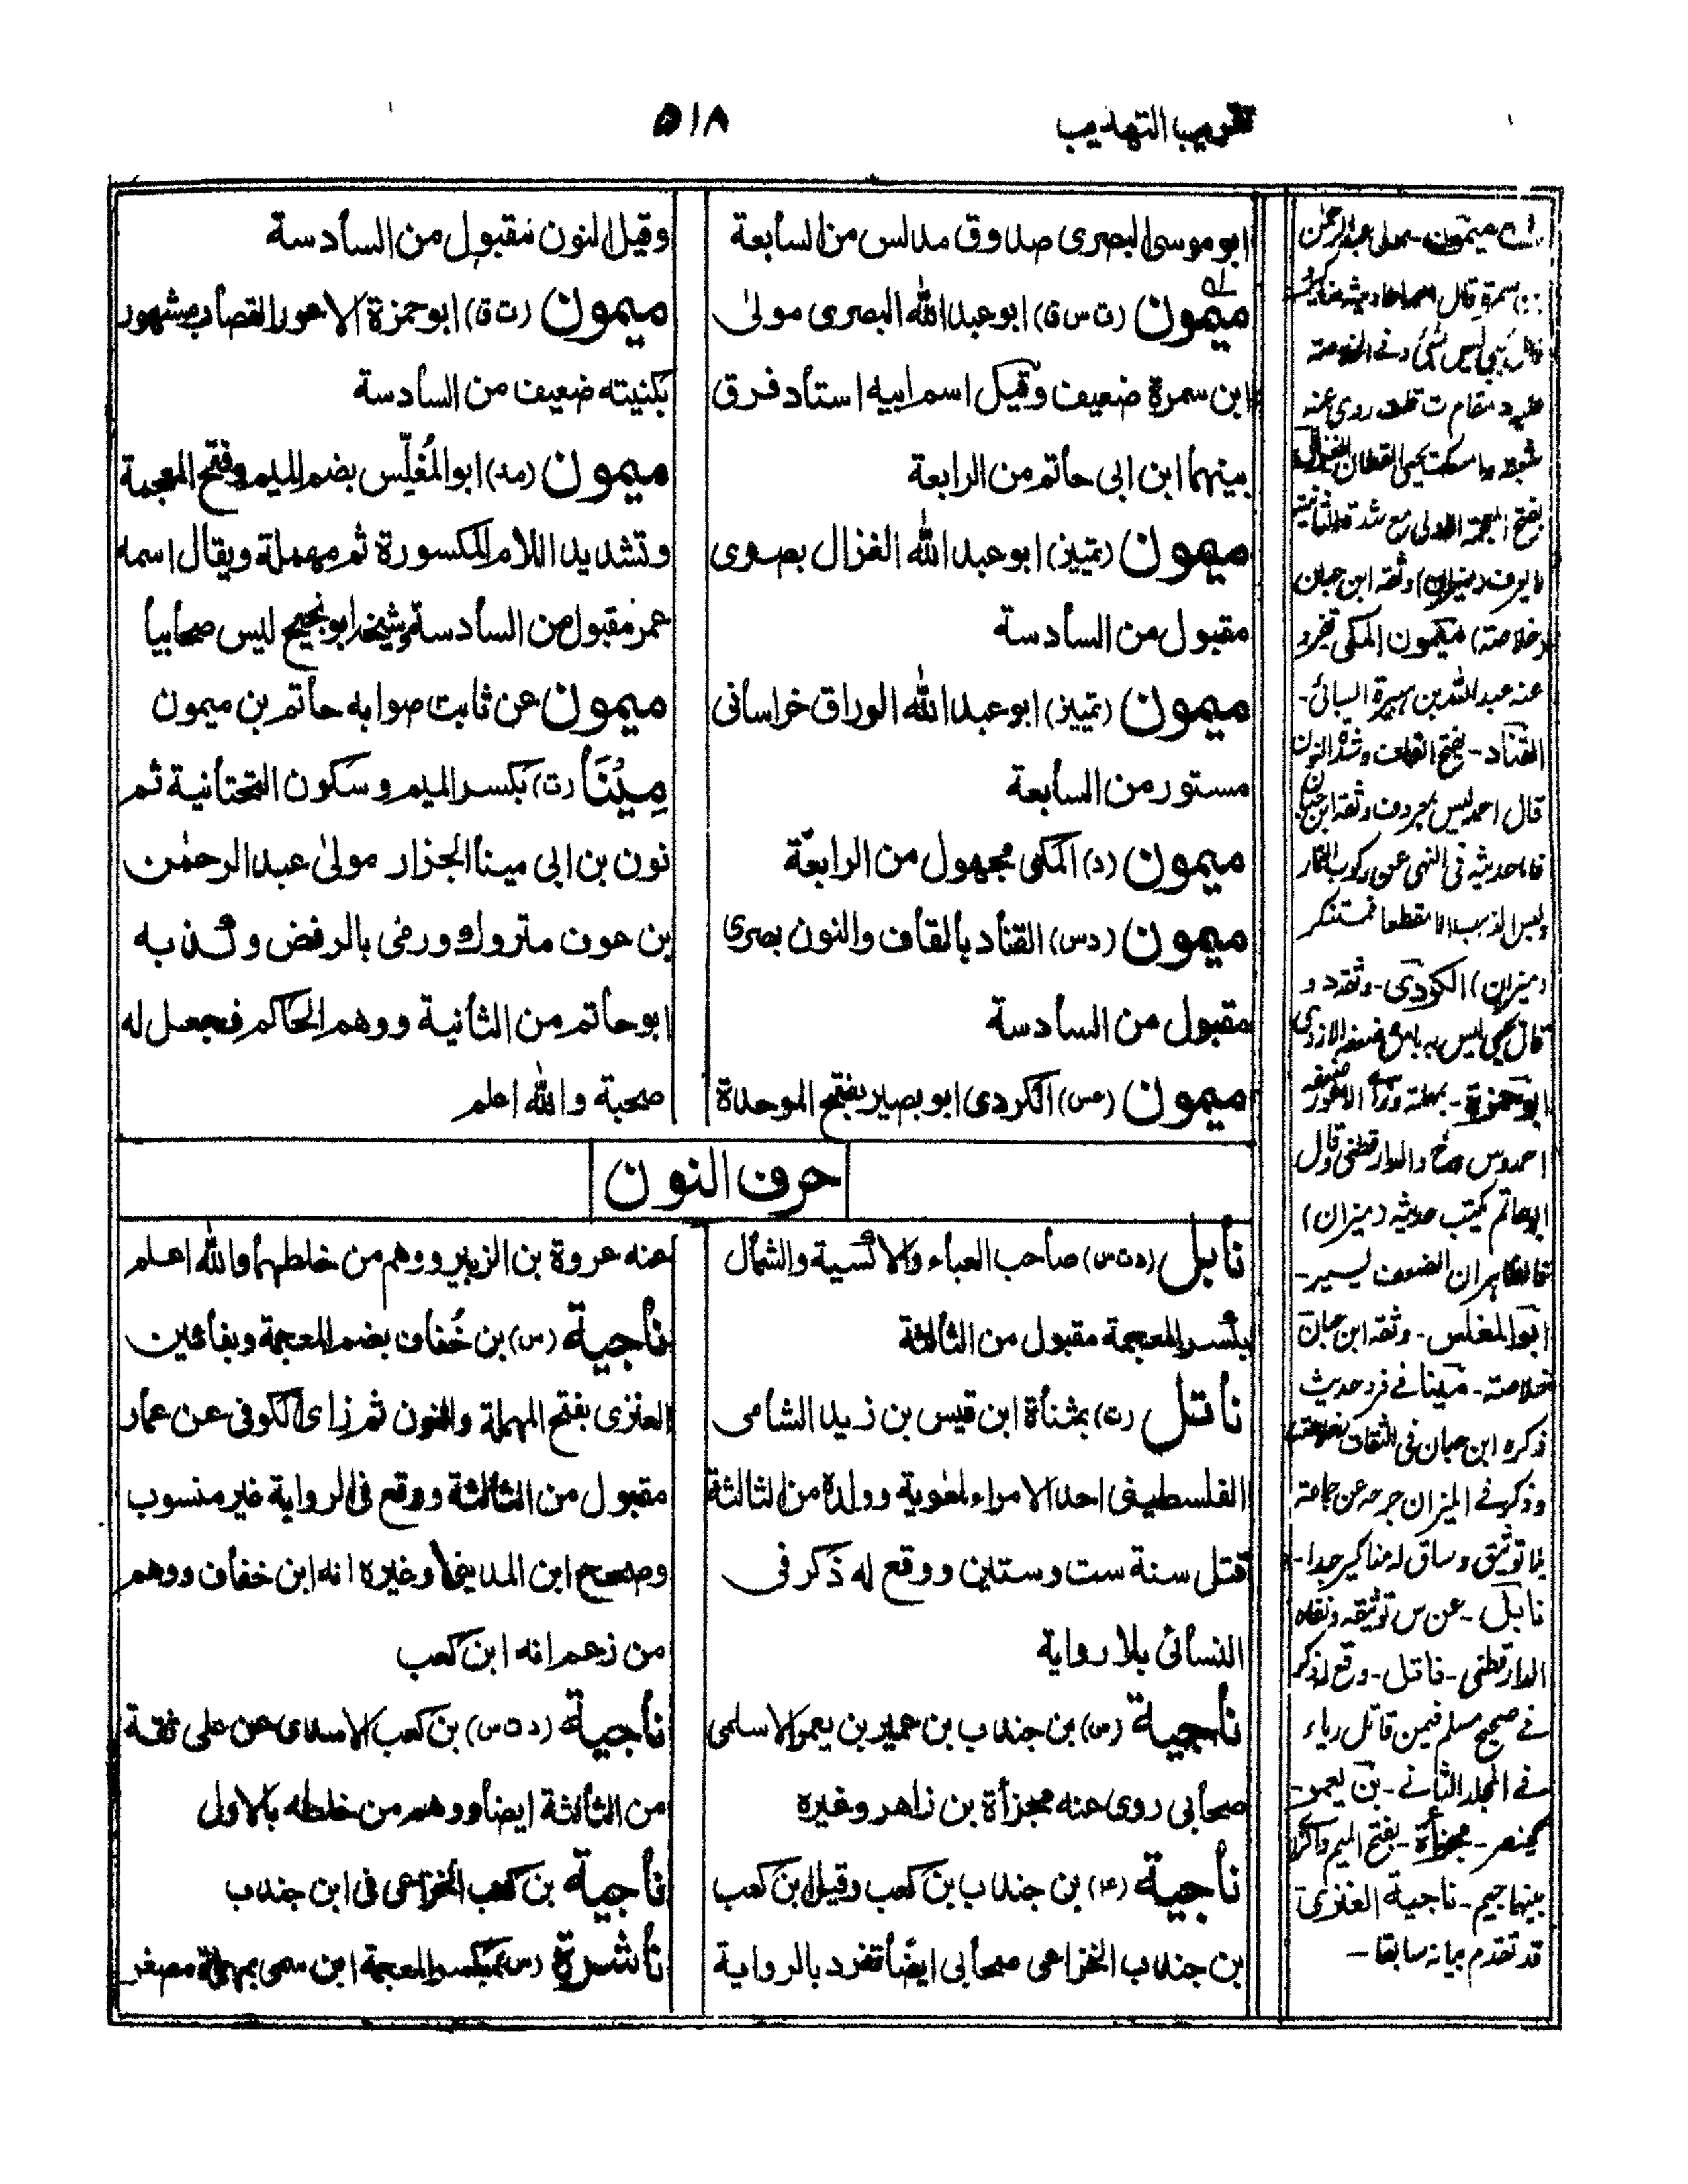 تقريب التهذيب
٥١٨
ابوموسى البصرى صدوق مدلس من السابعة
ميمون (ت س ق) ابوعبدالله البصرى مولى
ابن سمرة ضعيف وقيل اسم ابيه استاد فرق
بينهما ابن ابى حاتم من الرابعة
ميمون (تمييز) ابوعبدالله الغزال بصرى
مقبول من السادسة
ميمون (تمييز) ابوعبدالله الوراق خراسانى
مستور من السابعة
ميمون (د) المكى مجهول من الرابعة
ميمون (دس) القناد بالقاف والنون بصرى
مقبول من السادسة
ميمون (عس) الكردى ابو بصير بفتح الموحدة
وقيل النون مقبول من السادسة
ميمون (ت ق) ابوحمزة الاعور القصاب مشهور
بكنيته ضعيف من السادسة
ميمون (مد) ابوالمُغلِّس بضم الميم وفتح المعجمة
وتشديد اللام المكسورة ثم مهملة ويقال اسمه
عمر مقبول من السادسة وشيخه ابونجيح ليس صحابيا
ميمون عن ثابت صوابه حاتم بن ميمون
مِيْنَا (ت) بكسر الميم وسكون التحتانية ثم
نون بن ابى مينا الجزار مولى عبدالرحمٰن
بن عوف متروك ورمى بالرفض وكذبه
ابوحاتم من الثانية ووهم الحاكم فجعل له
صحبة والله اعلم
حرف النون
نابل (دت س) صاحب العباء والاكسية والشمال
بكسر المعجمة مقبول من الثالثة
ناتل (ت) بمثناة ابن قيس بن زيد الشامى
الفلسطينى احد الامراء لمعوية وولده من الثالثة
قتل سنة ست وستين ووقع له ذكر فى
النسائى بلا رواية
ناجية (س) بن جندب بن عمير بن يعمر الاسلمى
صحابى روى عنه مجزأة بن زاهر وغيره
ناجية (۴) بن جندب بن كعب وقيل بن كعب
بن جندب الخزاعى صحابى ايضا تفرد بالرواية
عنه عروة بن الزبير ووهم من خلطهما والله اعلم
ناجية (س) بن خُفاف بضم المعجمة وبفائين
العنزى بفتح المهملة والنون ثم زاى الكوفى عن عمار
مقبول من الثالثة ووقع فى الرواية غير منسوب
وصحح ابن المدينى وغيره انه ابن خفاف ووهم
من زعم انه ابن كعب
ناجية (د ت س) بن كعب الاسدى عن على ثقة
من الثالثة ايضا ووهم من خلطه بالاول
ناجية بن كعب الخزاعى فى ابن جندب
ناشرة (س) بكسر المعجمة ابن سمى بمهملة مصغر
ميمون - مولى عبدالرحمٰن
بن سمرة قال
ليس بشئ وفى الخلاصة
روى عنه
شعبة يحيى القطان الغزال
بفتح المعجمة الاولى مع شدة الثانية
لا يعرف (ميزان) وثقه ابن حبان
(خلاصة) ميمون المكى تفرد
عنه عبدالله بن هبيرة السبائى -
القناد - بفتح القاف وشد النون
قال احمد ليس بمعروف وثقه ابن حبان
حديثه فى النهى عن ركوب النمار
وليس الذهب الا مقطعا فمستنكر
(ميزان) الكردى - وثقه د و
قال يحيى ليس به باس ضعفه الازدى
ابوحمزة - بمهملة وراء الاعور ضعفه
احمد وس وخ والدارقطنى وقال
ابوحاتم يكتب حديثه (ميزان)
فالظاهر ان الضعف يسير -
ابوالمغلس - وثقه ابن حبان
خلاصة - مينا فى فرد حديث
ذكره ابن حبان فى الثقات خلاصة
وذكر فى الميزان جرحه عن جماعة
بلا توثيق وساق له مناكير جدا -
نابل - عن س توثيقه ونفاه
الدارقطنى - ناتل - وقع له ذكر
فى صحيح مسلم فيمن قاتل رياء
فى المجلد الثانى - بن يعمر -
كينصر - مجزأة - بفتح الميم
بينهما جيم - ناجية العنزى
قد تقدم بيانه سابقا -